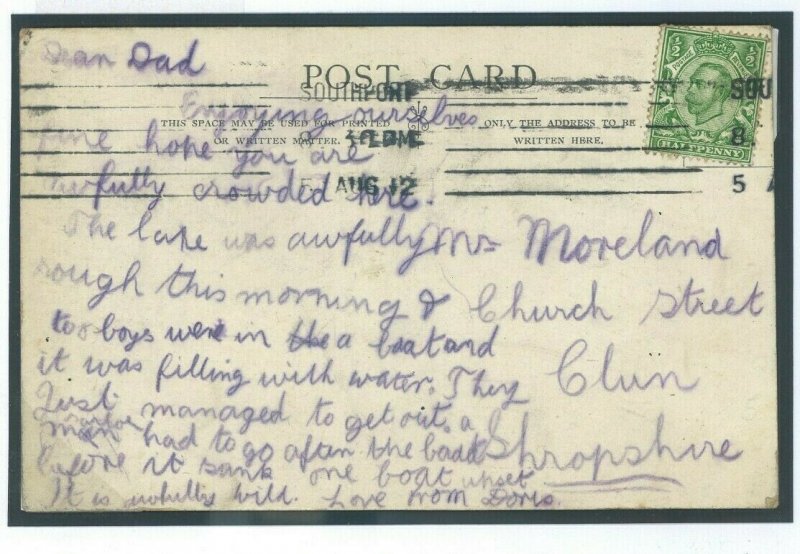 Dear Dad
POST CARD
SOUTHPORT
Enjoying ourselves
THIS SPACE MAY BE USED FOR PRINTED
OR WRITTEN MATTER.
ONLY THE ADDRESS TO BE
WRITTEN HERE.
fine hope you are
5 AUG 12
awfully crowded here.
The lake was awfully
rough this morning &
too boys were in a boat and
it was filling with water. They
Just managed to get out, a
man had to go after the boat
before it sank one boat upset
It is awfully wild. Love from Doris.
Mr Moreland
Church Street
Clun
Shropshire
1/2
POSTAGE
1/2
HALFPENNY
SOU
8.
5 A